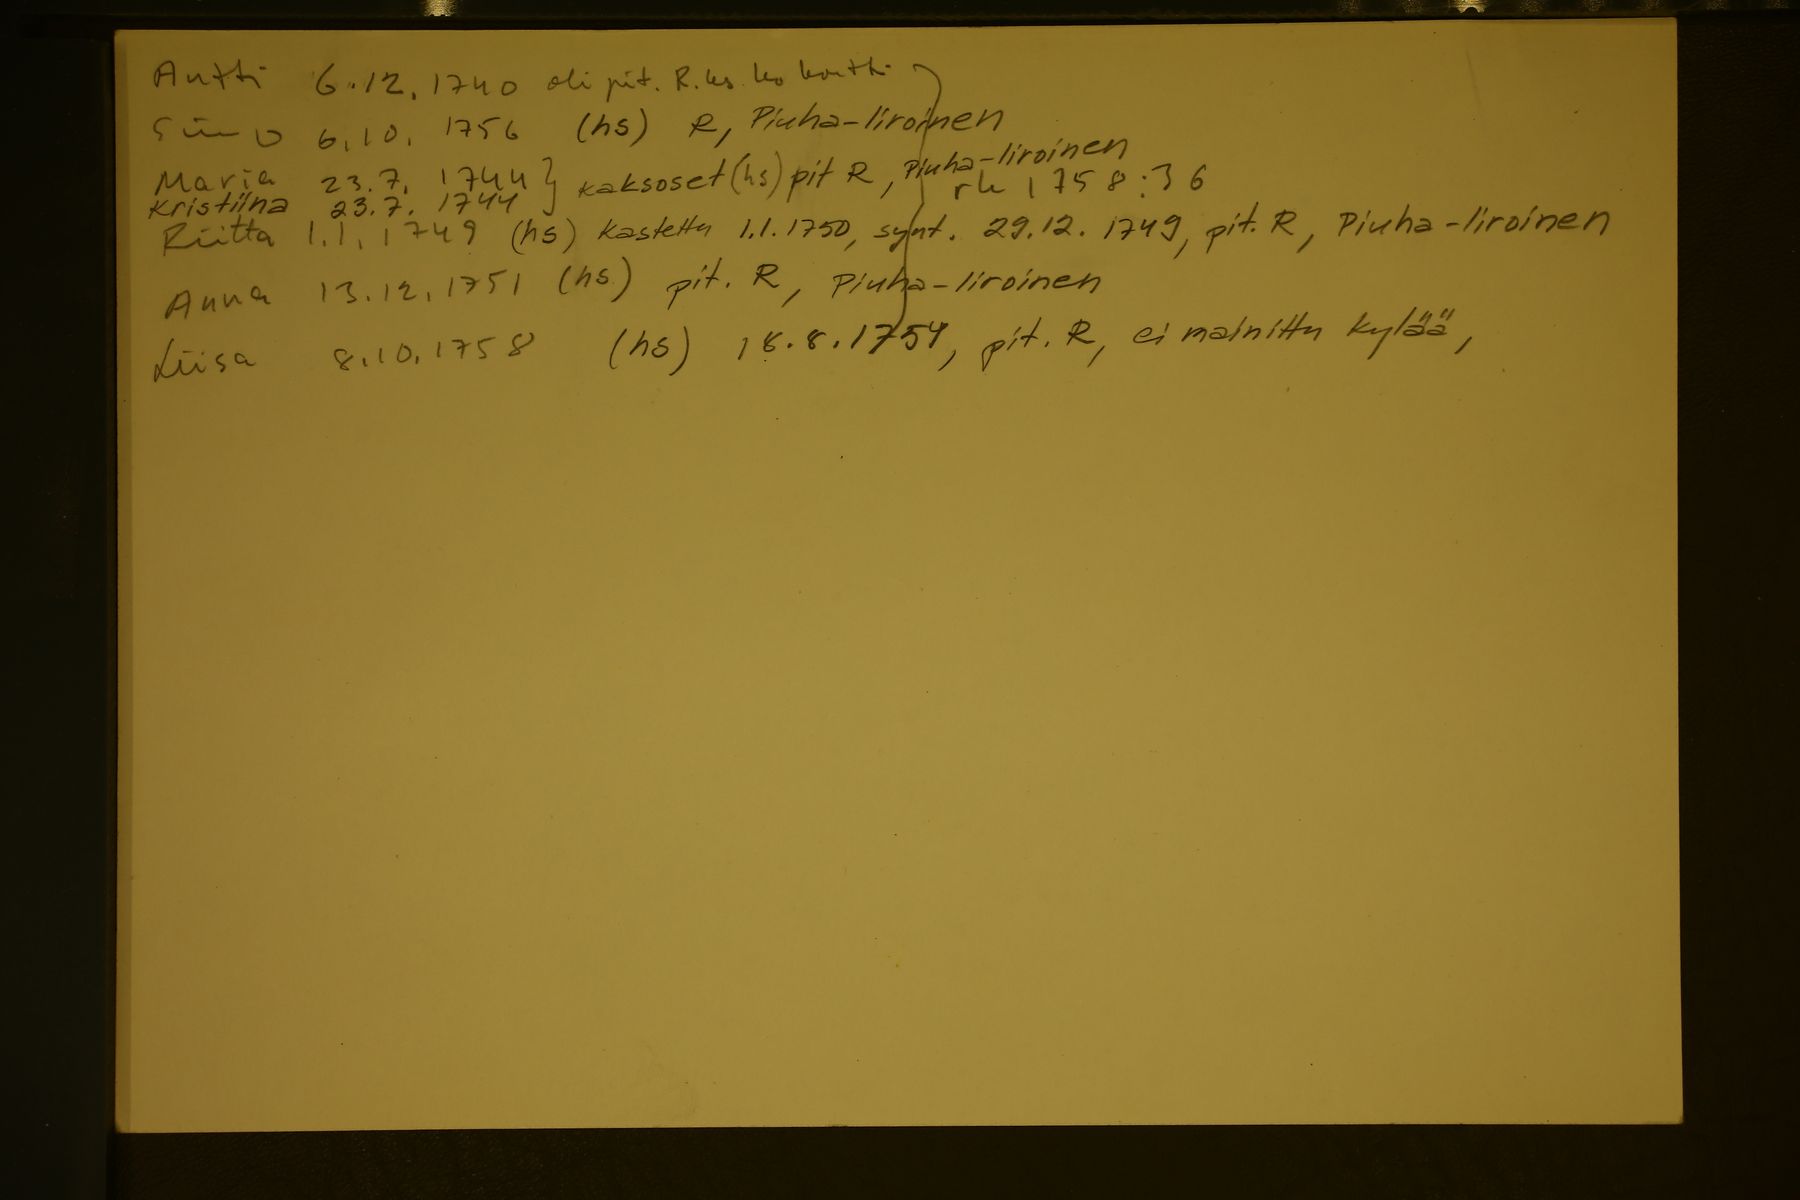 Antti 6.12.1740 oli pit. R. ks. ko kortti
Simo 6.10.1756 (hs) R, Piuha-Iiroinen
Maria 23.7.1744 } kaksoset (hs) pit R, Piuha-Iiroinen
Kristiina 23.7.1744 rk 1758:36
Riitta 1.1.1749 (hs) kastettu 1.1.1750, synt. 29.12.1749, pit. R, Piuha-Iiroinen
Anna 13.12.1751 (hs) pit. R, Piuha-Iiroinen
Liisa 8.10.1758 (hs) 18.8.1754, pit. R, ei mainittu kylää,